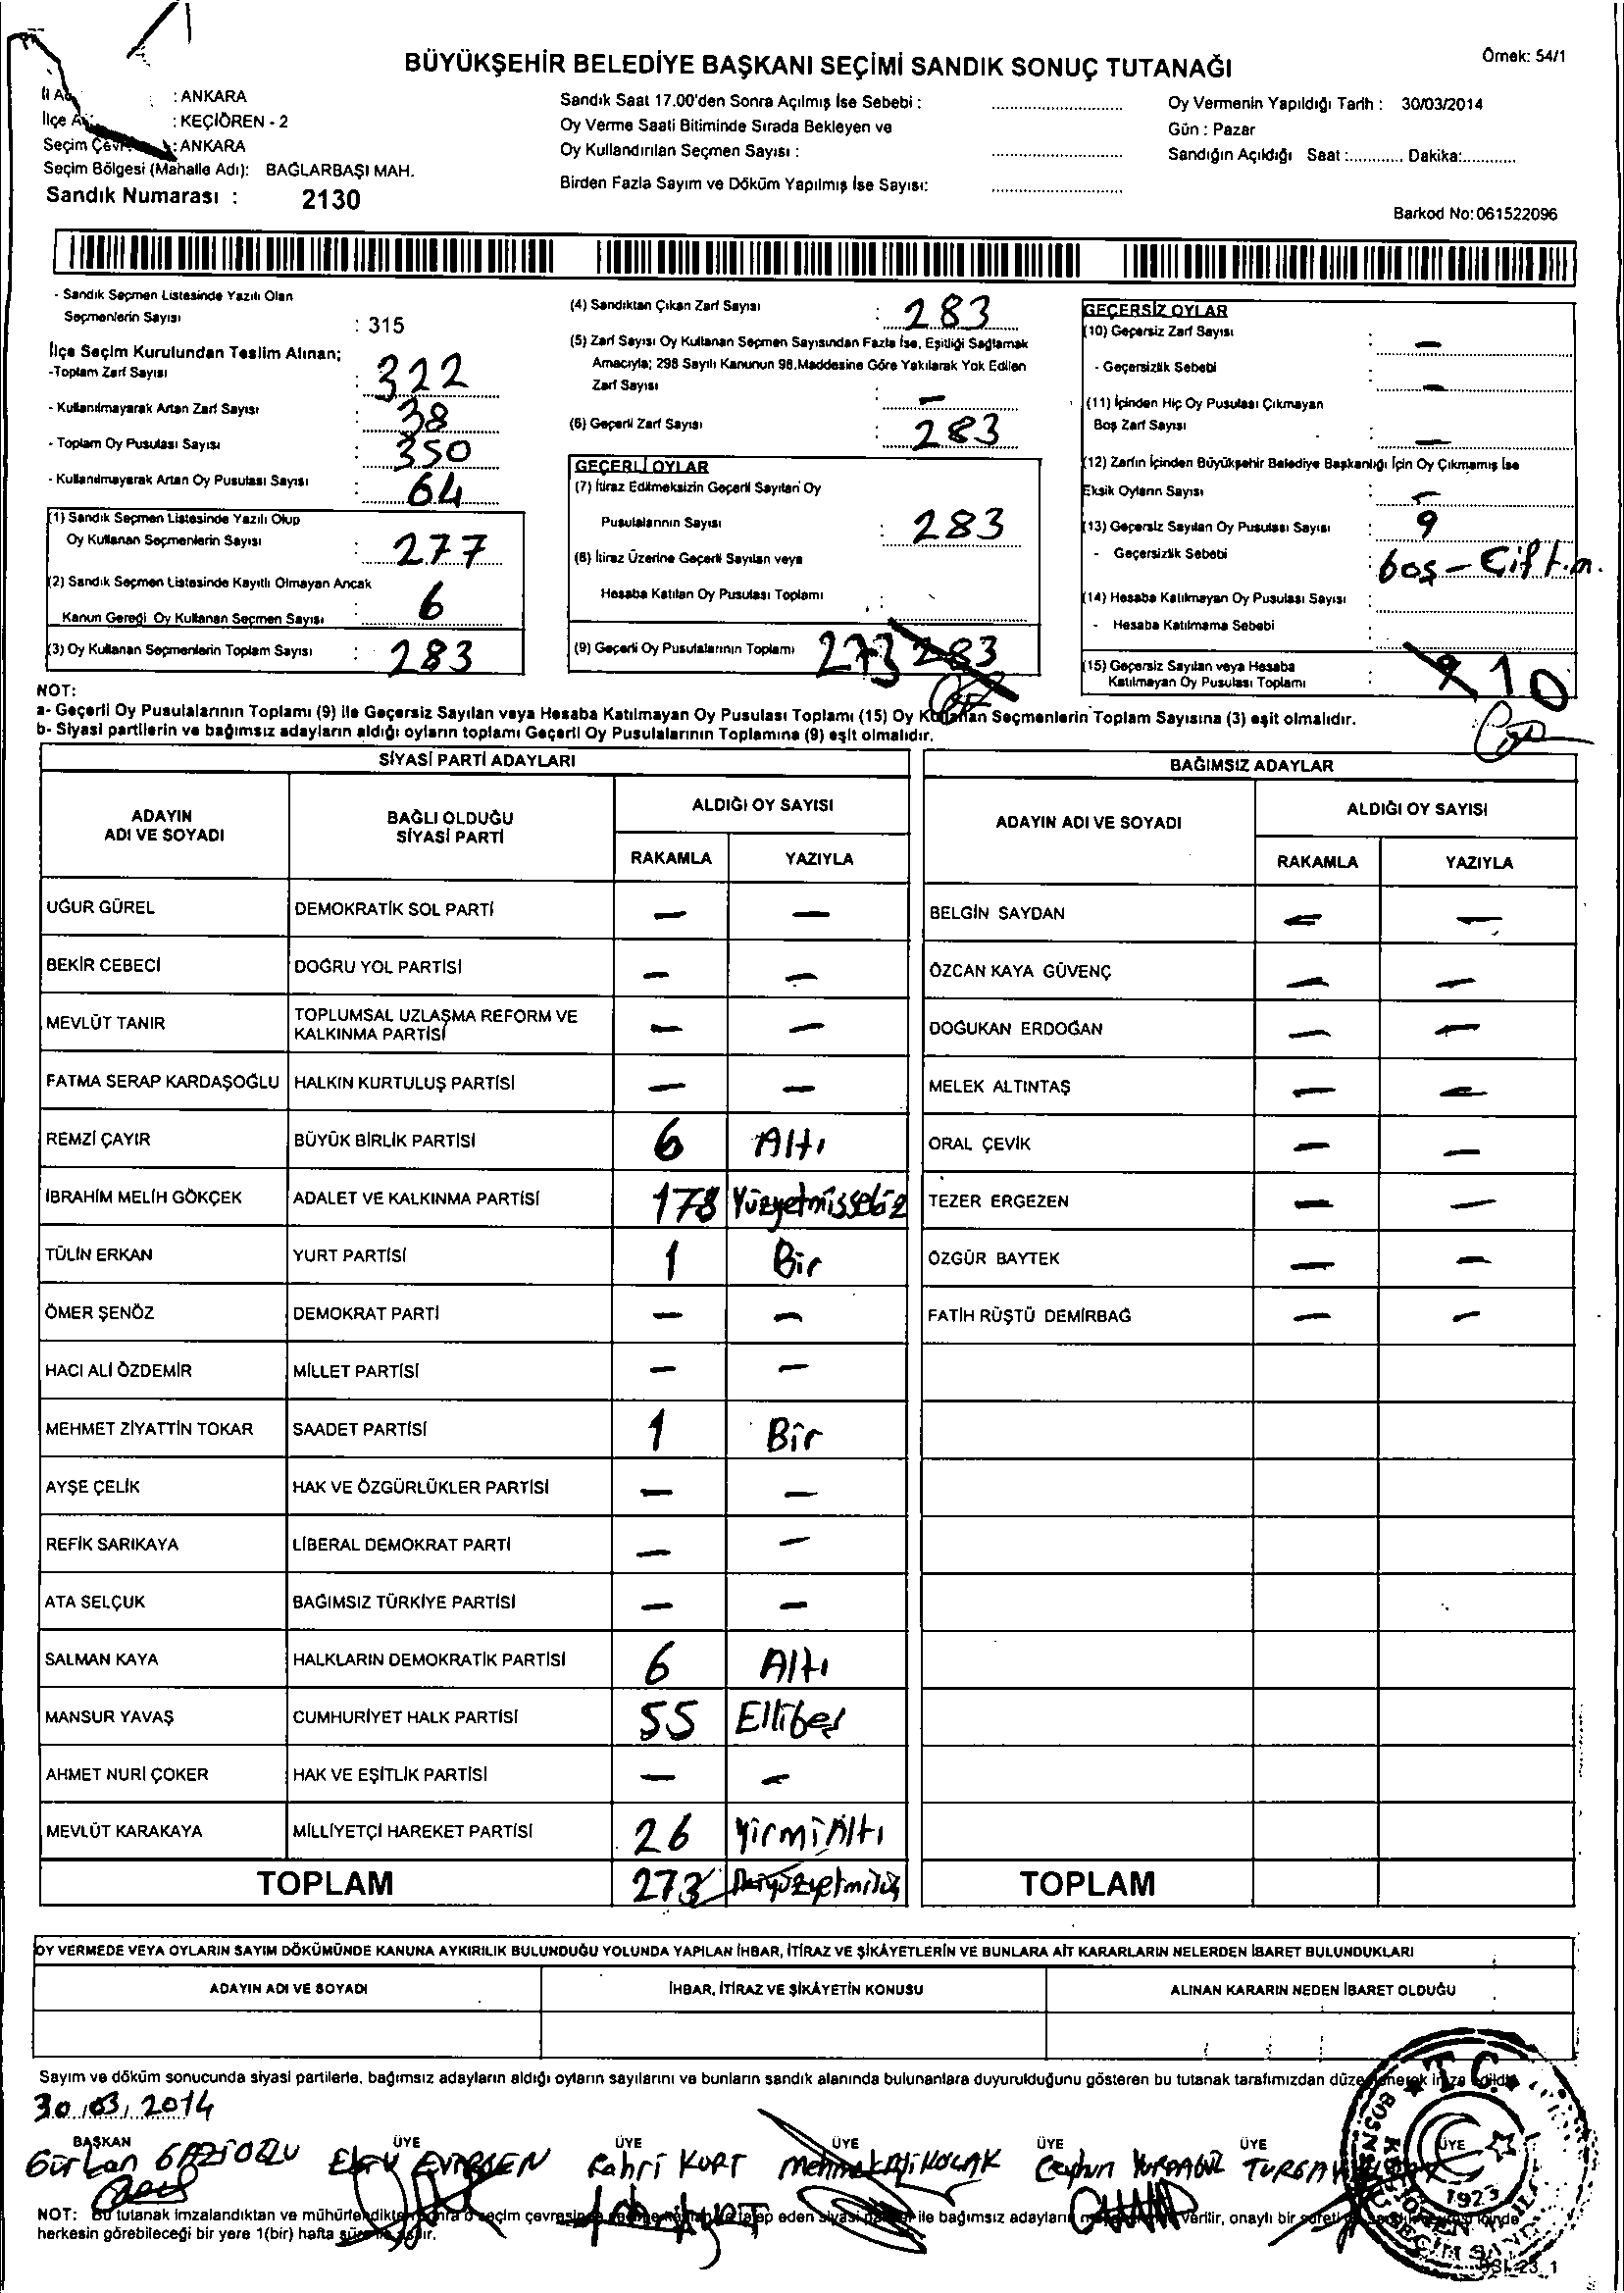 Örnek: 54/1
BÜYÜKŞEHİR BELEDİYE BAŞKANI SEÇİMİ SANDIK SONUÇ TUTANAĞI
: ANKARA
İlçe : KEÇİÖREN - 2
Seçim : ANKARA
Seçim Bölgesi (Mahalle Adı): BAĞLARBAŞI MAH.
Sandık Numarası : 2130
Sandık Saat 17.00'den Sonra Açılmış İse Sebebi :
Oy Verme Saati Bitiminde Sırada Bekleyen ve
Oy Kullandırılan Seçmen Sayısı :
Birden Fazla Sayım ve Döküm Yapılmış İse Sayısı:
Oy Vermenin Yapıldığı Tarih : 30/03/2014
Gün : Pazar
Sandığın Açıldığı Saat :............ Dakika:............
Barkod No: 061522096
- Sandık Seçmen Listesinde Yazılı Olan
Seçmenlerin Sayısı : 315
İlçe Seçim Kurulundan Teslim Alınan;
-Toplam Zarf Sayısı : 322
- Kullanılmayarak Artan Zarf Sayısı : 38
- Toplam Oy Pusulası Sayısı : 350
- Kullanılmayarak Artan Oy Pusulası Sayısı : 64
(1) Sandık Seçmen Listesinde Yazılı Olup
Oy Kullanan Seçmenlerin Sayısı : 277
(2) Sandık Seçmen Listesinde Kayıtlı Olmayan Ancak
Kanun Gereği Oy Kullanan Seçmen Sayısı : 6
(3) Oy Kullanan Seçmenlerin Toplam Sayısı : 283
(4) Sandıktan Çıkan Zarf Sayısı : 283
(5) Zarf Sayısı Oy Kullanan Seçmen Sayısından Fazla İse, Eşitliği Sağlamak
Amacıyla; 298 Sayılı Kanunun 98.Maddesine Göre Yakılarak Yok Edilen
Zarf Sayısı : –
(6) Geçerli Zarf Sayısı : 283
GEÇERLİ OYLAR
(7) İtiraz Edilmeksizin Geçerli Sayılan Oy
Pusulalarının Sayısı : 283
(8) İtiraz Üzerine Geçerli Sayılan veya
Hesaba Katılan Oy Pusulası Toplamı :
(9) Geçerli Oy Pusulalarının Toplamı 273 283
GEÇERSİZ OYLAR
(10) Geçersiz Zarf Sayısı : –
- Geçersizlik Sebebi : –
(11) İçinden Hiç Oy Pusulası Çıkmayan
Boş Zarf Sayısı : –
(12) Zarfın İçinden Büyükşehir Belediye Başkanlığı İçin Oy Çıkmamış İse
Eksik Oyların Sayısı :
(13) Geçersiz Sayılan Oy Pusulası Sayısı : 9
- Geçersizlik Sebebi : boş - Çift.m.
(14) Hesaba Katılmayan Oy Pusulası Sayısı :
- Hesaba Katılmama Sebebi :
(15) Geçersiz Sayılan veya Hesaba
Katılmayan Oy Pusulası Toplamı : 10
NOT:
a- Geçerli Oy Pusulalarının Toplamı (9) ile Geçersiz Sayılan veya Hesaba Katılmayan Oy Pusulası Toplamı (15) Oy Kullanan Seçmenlerin Toplam Sayısına (3) eşit olmalıdır.
b- Siyasi partilerin ve bağımsız adayların aldığı oyların toplamı Geçerli Oy Pusulalarının Toplamına (9) eşit olmalıdır.
SİYASİ PARTİ ADAYLARI
ADAYIN ADI VE SOYADI
BAĞLI OLDUĞU SİYASİ PARTİ
ALDIĞI OY SAYISI
RAKAMLA YAZIYLA
UĞUR GÜREL DEMOKRATİK SOL PARTİ – –
BEKİR CEBECİ DOĞRU YOL PARTİSİ – –
MEVLÜT TANIR TOPLUMSAL UZLAŞMA REFORM VE KALKINMA PARTİSİ – –
FATMA SERAP KARDAŞOĞLU HALKIN KURTULUŞ PARTİSİ – –
REMZİ ÇAYIR BÜYÜK BİRLİK PARTİSİ 6 Altı
İBRAHİM MELİH GÖKÇEK ADALET VE KALKINMA PARTİSİ 178 Yüzyetmişsekiz
TÜLİN ERKAN YURT PARTİSİ 1 Bir
ÖMER ŞENÖZ DEMOKRAT PARTİ – –
HACI ALİ ÖZDEMİR MİLLET PARTİSİ – –
MEHMET ZİYATTİN TOKAR SAADET PARTİSİ 1 Bir
AYŞE ÇELİK HAK VE ÖZGÜRLÜKLER PARTİSİ – –
REFİK SARIKAYA LİBERAL DEMOKRAT PARTİ – –
ATA SELÇUK BAĞIMSIZ TÜRKİYE PARTİSİ – –
SALMAN KAYA HALKLARIN DEMOKRATİK PARTİSİ 6 Altı
MANSUR YAVAŞ CUMHURİYET HALK PARTİSİ 55 Ellibeş
AHMET NURİ ÇOKER HAK VE EŞİTLİK PARTİSİ – –
MEVLÜT KARAKAYA MİLLİYETÇİ HAREKET PARTİSİ 26 YirmiAltı
TOPLAM 273
BAĞIMSIZ ADAYLAR
ADAYIN ADI VE SOYADI
ALDIĞI OY SAYISI
RAKAMLA YAZIYLA
BELGİN SAYDAN – –
ÖZCAN KAYA GÜVENÇ – –
DOĞUKAN ERDOĞAN – –
MELEK ALTINTAŞ – –
ORAL ÇEVİK – –
TEZER ERGEZEN – –
ÖZGÜR BAYTEK – –
FATİH RÜŞTÜ DEMİRBAĞ – –
TOPLAM
OY VERMEDE VEYA OYLARIN SAYIM DÖKÜMÜNDE KANUNA AYKIRILIK BULUNDUĞU YOLUNDA YAPILAN İHBAR, İTİRAZ VE ŞİKÂYETLERİN VE BUNLARA AİT KARARLARIN NELERDEN İBARET BULUNDUKLARI
ADAYIN ADI VE SOYADI İHBAR, İTİRAZ VE ŞİKÂYETİN KONUSU ALINAN KARARIN NEDEN İBARET OLDUĞU
Sayım ve döküm sonucunda siyasi partilerle, bağımsız adayların aldığı oyların sayılarını ve bunların sandık alanında bulunanlara duyurulduğunu gösteren bu tutanak tarafımızdan düzenlenerek imza edildi.
30.03.2014
BAŞKAN ÜYE ÜYE ÜYE ÜYE ÜYE ÜYE
Gürkan Fahri KURT Ceyhun
T.C.
1923
NOT: Bu tutanak imzalandıktan ve mühürlendikten sonra o seçim çevresinde talep eden siyasi ile bağımsız adayların verilir, onaylı bir sureti
herkesin görebileceği bir yere 1(bir) hafta süre ile asılır.